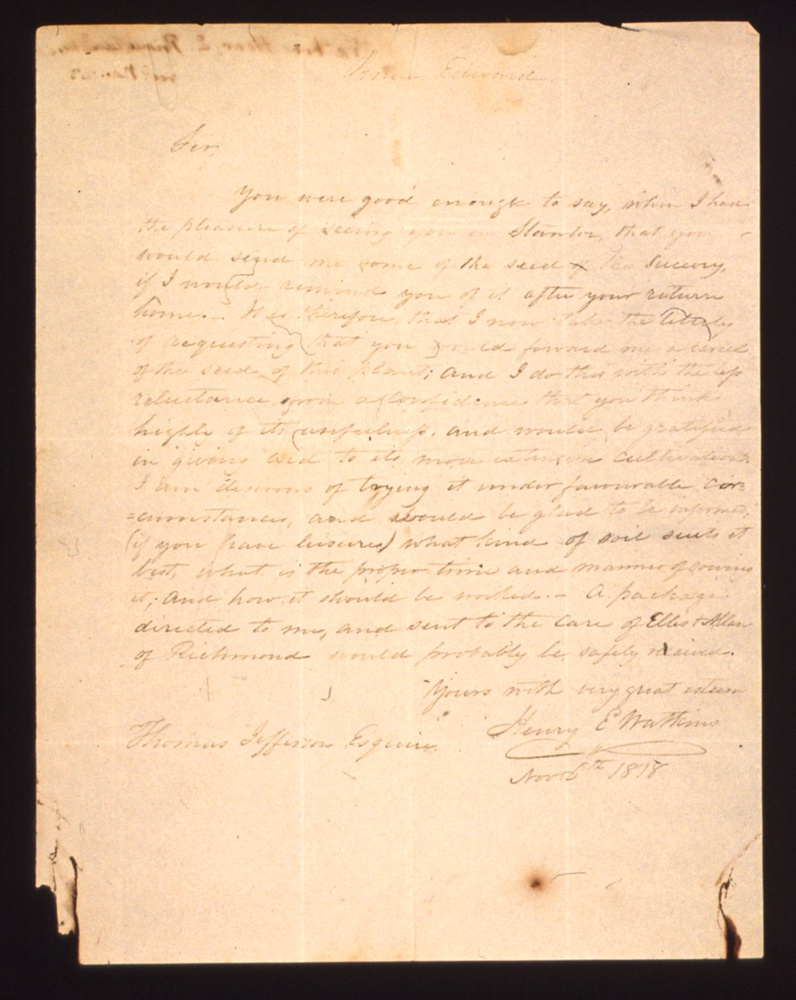 Prince Edward
Sir,
You were good enough to say, when I had
the pleasure of seeing you in Staunton, that you
would send me some of the seed of the Succory,
if I would remind you of it after your return
home.. It is therefore, that I now take the liberty
of requesting that you would forward me a parcel
of the seed of this plant; and I do this with the less
reluctance, from a confidence that you think
highly of its usefulness, and would be gratified
in giving aid to its more extensive cultivation.
I am desirous of trying it under favourable cir=
=cumstances, and should be glad to be informed,
(if you have leisure) what kind of soil suits it
best, what is the proper time and manner of sowing
it; and how it should be worked.- A package
directed to me, and sent to the care of Ellis & Allan
of Richmond would probably be safely received.
Yours with very great esteem
Henry E Watkins
Thomas Jefferson Esquire.
Nov 6th 1818